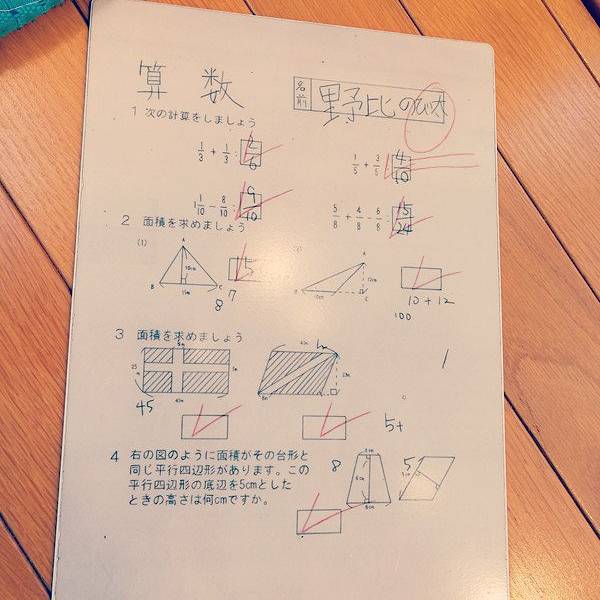 算数
名前 野比のび太
1 次の計算をしましょう
1/3 + 1/3 = 2/6
1/5 + 3/5 = 4/10
1 1/10 − 8/10 = 9/10
5/8 + 4/8 − 6/8 = 15/24
2 面積を求めましょう
(1)
A
10cm
B 15cm C
5
7
8
A
12cm
10cm C
10+12
100
3 面積を求めましょう
5m
25
5m
45
5+
4 右の図のように面積がその台形と
同じ平行四辺形があります。この
平行四辺形の底辺を5cmとした
ときの高さは何cmですか。
8
6cm
8cm
5
5cm